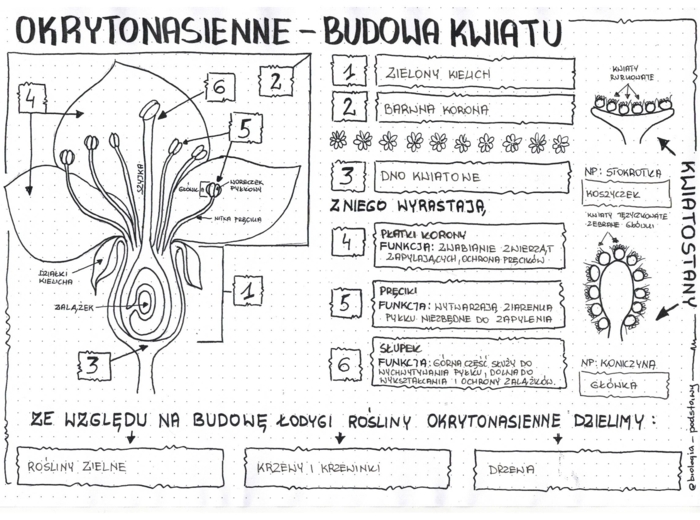 OKRYTONASIENNE - BUDOWA KWIATU
4
6
2
5
SZYJKA
GŁÓWKA
WORECZEK
PYŁKOWY
NITKA PRĘCIKA
DZIAŁKI
KIELICHA
ZALĄŻEK
1
3
1 ZIELONY KIELICH
2 BARWNA KORONA
3 DNO KWIATOWE
Z NIEGO WYRASTAJĄ,
4 PŁATKI KORONY
FUNKCJA: ZWABIANIE ZWIERZĄT
ZAPYLAJĄCYCH, OCHRONA PRĘCIKÓW
5 PRĘCIKI
FUNKCJA: WYTWARZAJĄ ZIARENKA
PYŁKU NIEZBĘDNE DO ZAPYLENIA
6 SŁUPEK
FUNKCJA: GÓRNA CZĘŚĆ SŁUŻY DO
WYCHWYTYWANIA PYŁKU, DOLNA DO
WYKSZTAŁCANIA I OCHRONY ZALĄŻKÓW.
KWIATY
RURKOWATE
NP: STOKROTKA
KOSZYCZEK
KWIATY JĘZYCZKOWATE
ZEBRANE GŁÓWKI
NP: KONICZYNA
GŁÓWKA
KWIATOSTANY
@biologia_podstawy
ZE WZGLĘDU NA BUDOWĘ ŁODYGI ROŚLINY OKRYTONASIENNE DZIELIMY:
ROŚLINY ZIELNE
KRZEWY I KRZEWINKI
DRZEWA